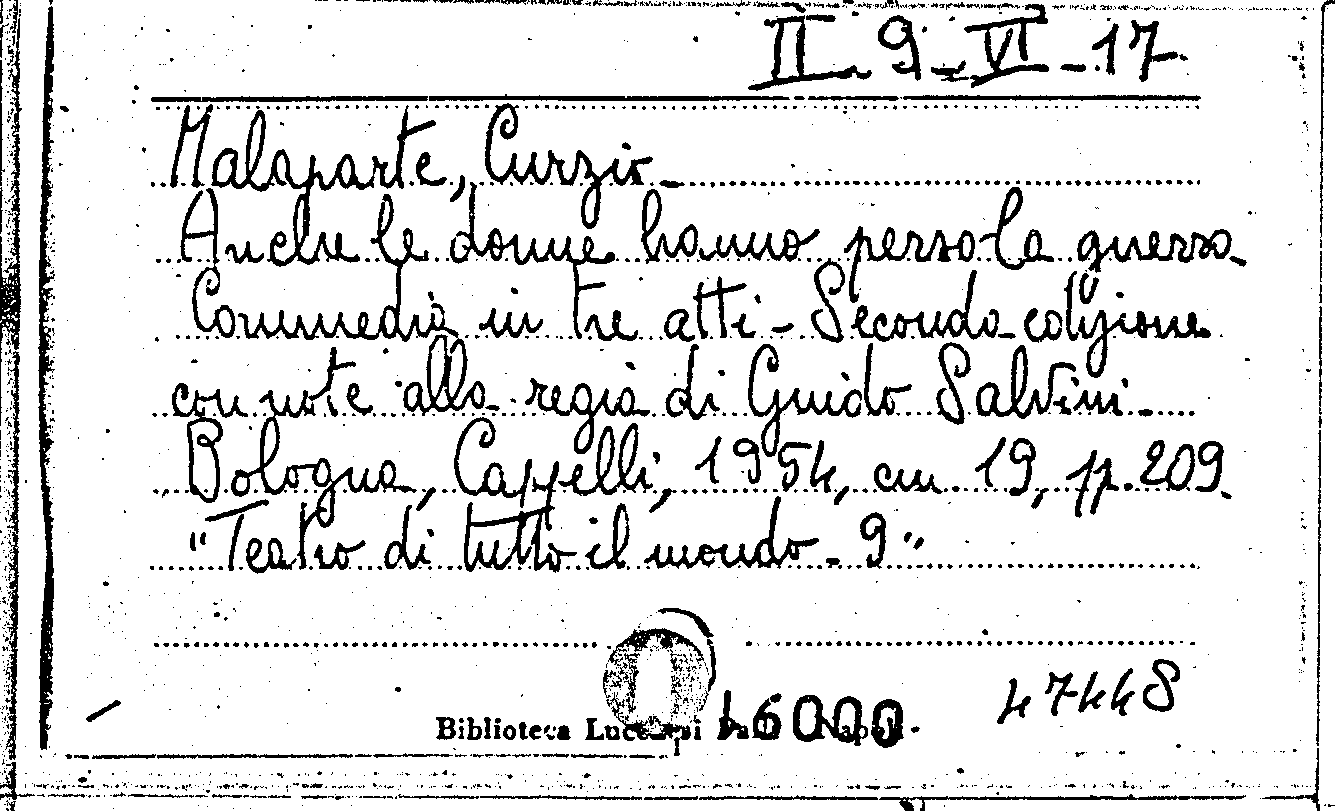 II - 9 - VI - 17
Malaparte, Curzio -
Anche le donne hanno perso la guerra -
Commedia in tre atti - Seconda edizione
con note alla regia di Guido Salvini -
Bologna, Cappelli, 1954, cm. 19, pp. 209.
"Teatro di tutto il mondo - 9"
47448
Biblioteca 46000